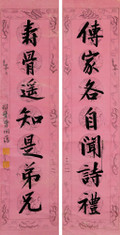 傳家各自聞詩禮
壽骨遥知是弟兄